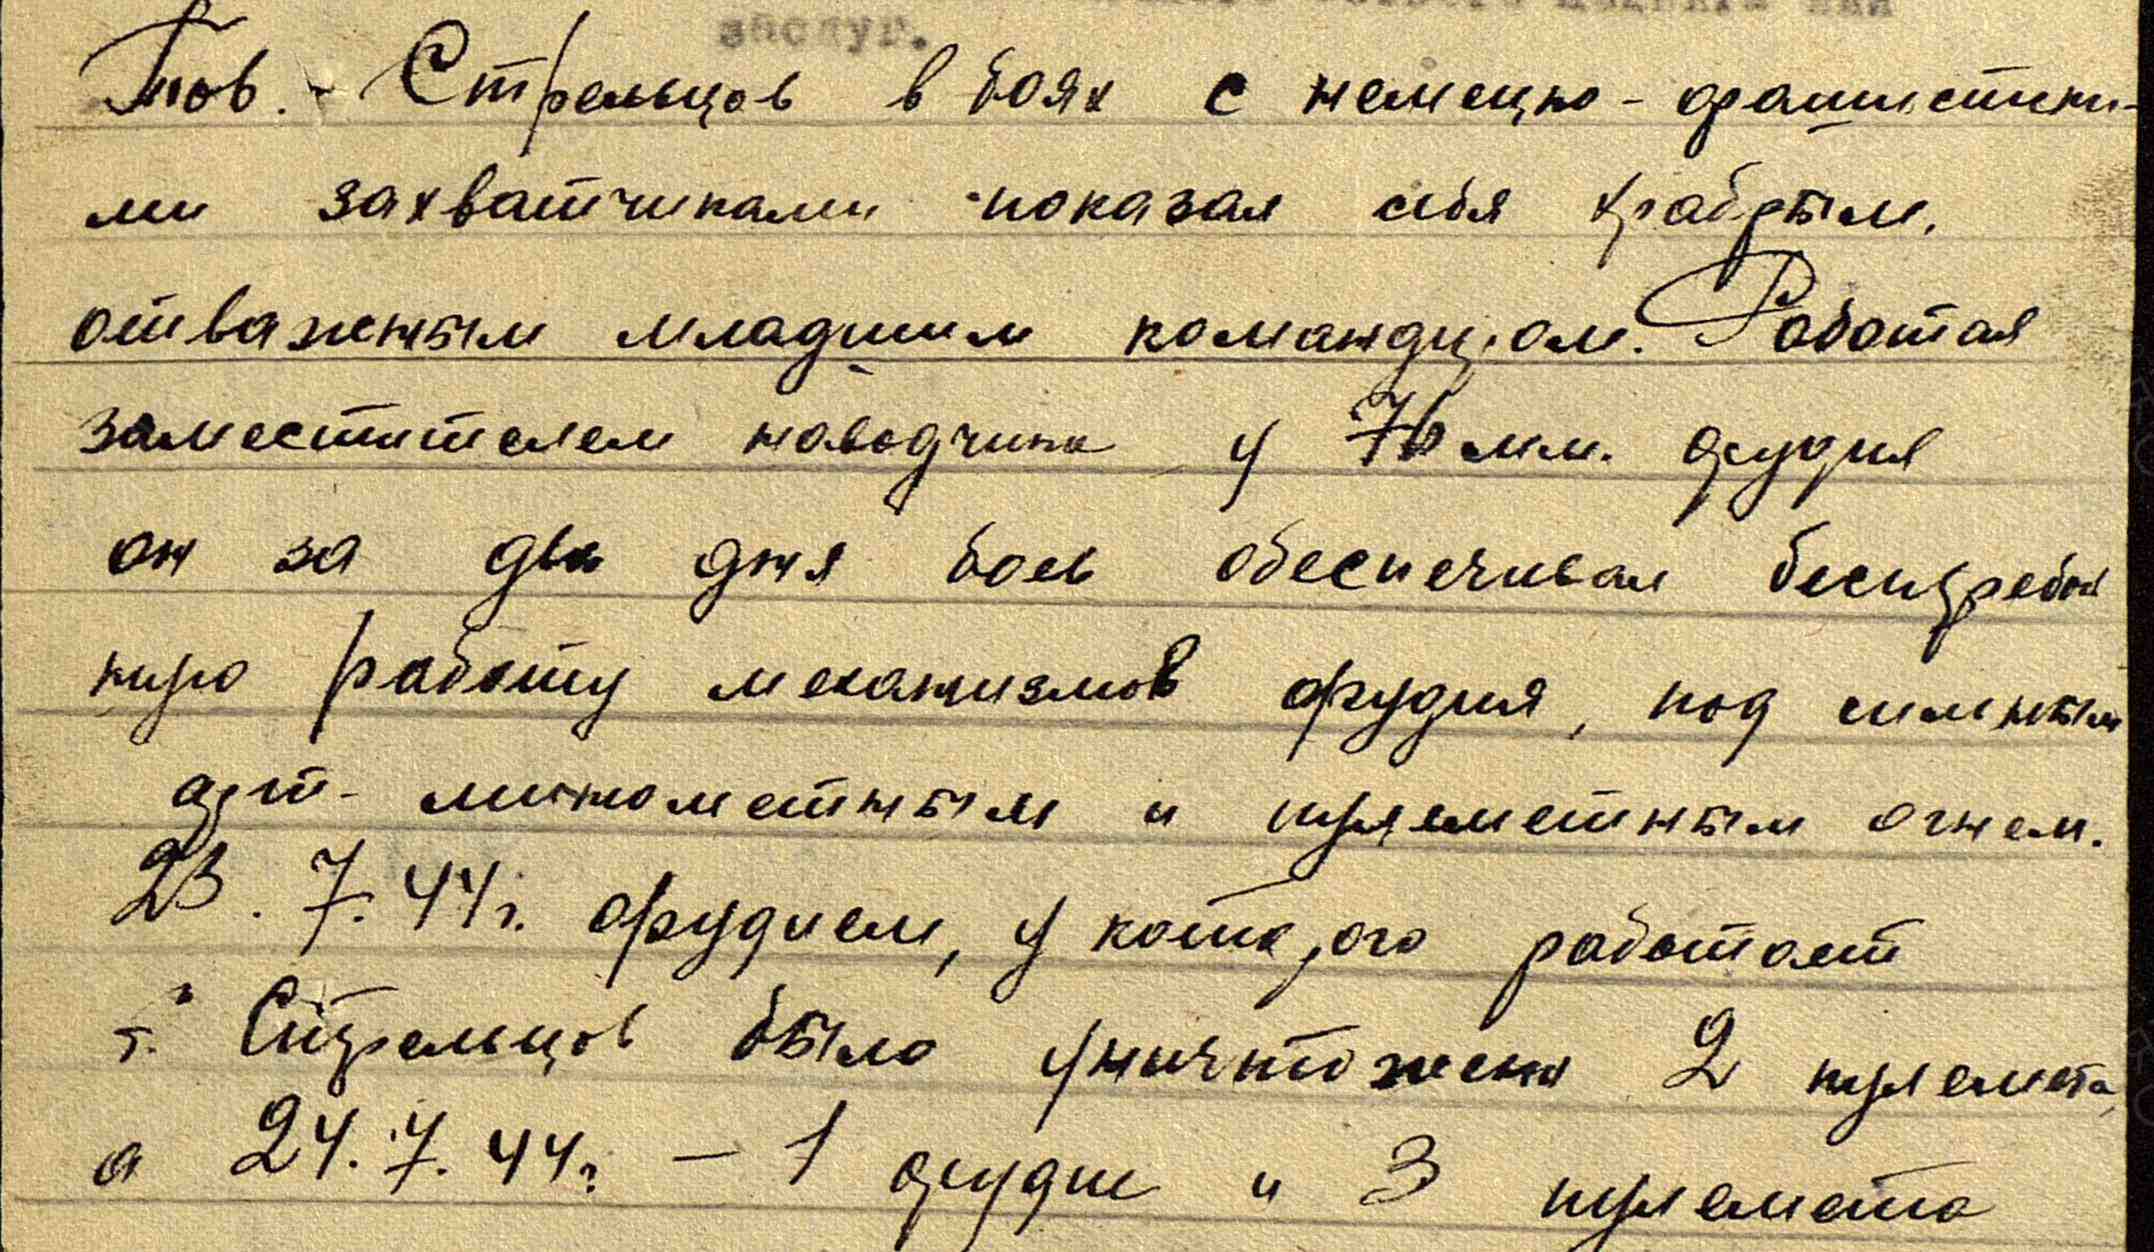 заслуг.
Тов. Стрельцов в боях с немецко-фашистски-
ми захватчиками показал себя храбрым,
отважным младшим командиром. Работая
заместителем наводчика у 76 мм. орудия
он за два дня боев обеспечивал бесперебой
ную работу механизмов орудия, под сильным
арт-минометным и пулеметным огнем.
23.7.44г. орудием, у которого работает
т. Стрельцов было уничтожено 2 пулемета,
а 24.7.44г. — 1 орудие и 3 пулемета